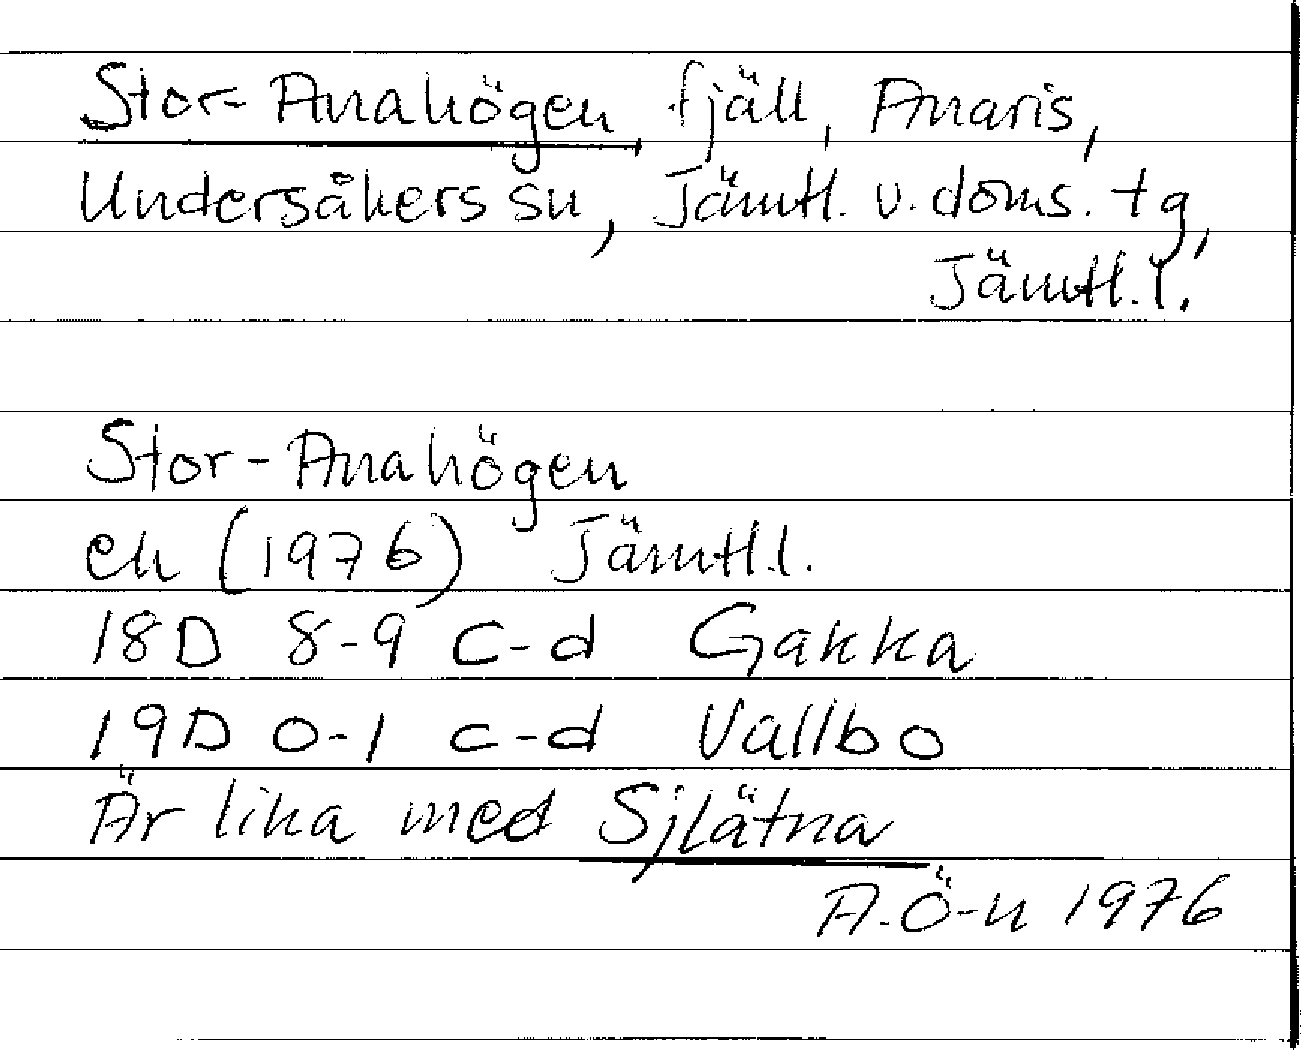 Stor-Anahögen, fjäll, Anaris,
Undersåkers sn, Jämtl. v. doms. tg,
Jämtl. l.
Stor-Anahögen
ek (1976) Jämtl.l.
18D 8-9 c-d Gakka
19D 0-1 c-d Vallbo
Är lika med Sjlätna
A.Ö-n 1976